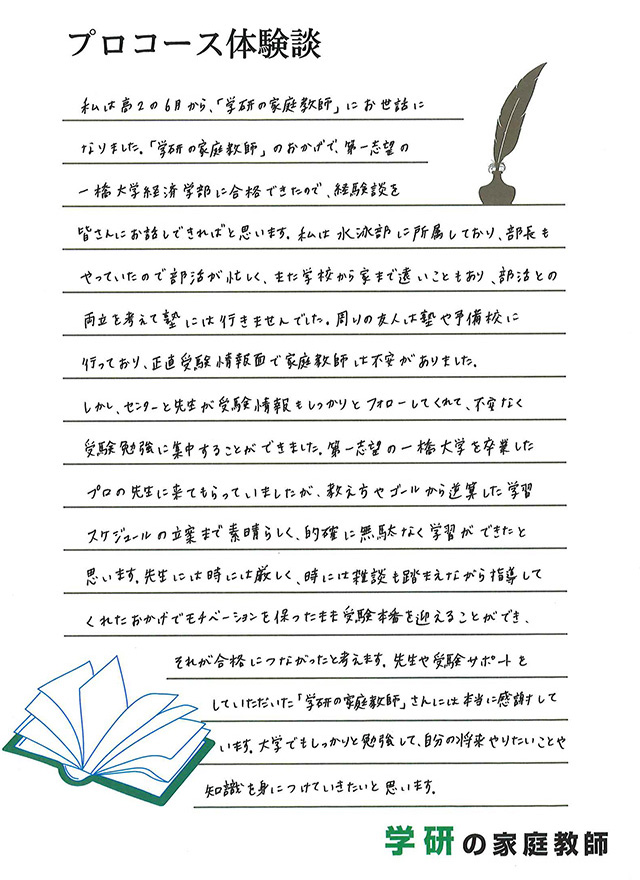 プロコース体験談
私は高2の6月から、「学研の家庭教師」にお世話に
なりました。「学研の家庭教師」のおかげで、第一志望の
一橋大学経済学部に合格できたので、経験談を
皆さんにお話しできればと思います。私は水泳部に所属しており、部長も
やっていたので部活が忙しく、また学校から家まで遠いこともあり、部活との
両立を考えて塾には行きませんでした。周りの友人は塾や予備校に
行っており、正直受験情報面で家庭教師は不安がありました。
しかし、センターと先生が受験情報もしっかりとフォローしてくれて、不安なく
受験勉強に集中することができました。第一志望の一橋大学を卒業した
プロの先生に来てもらっていましたが、教え方やゴールから逆算した学習
スケジュールの立案まで素晴らしく、的確に無駄なく学習ができたと
思います。先生には時には厳しく、時には雑談も踏まえながら指導して
くれたおかげでモチベーションを保ったまま受験本番を迎えることができ、
それが合格につながったと考えます。先生や受験サポートを
していただいた「学研の家庭教師」さんには本当に感謝して
います。大学でもしっかりと勉強して、自分の将来やりたいことや
知識を身につけていきたいと思います。
学研の家庭教師